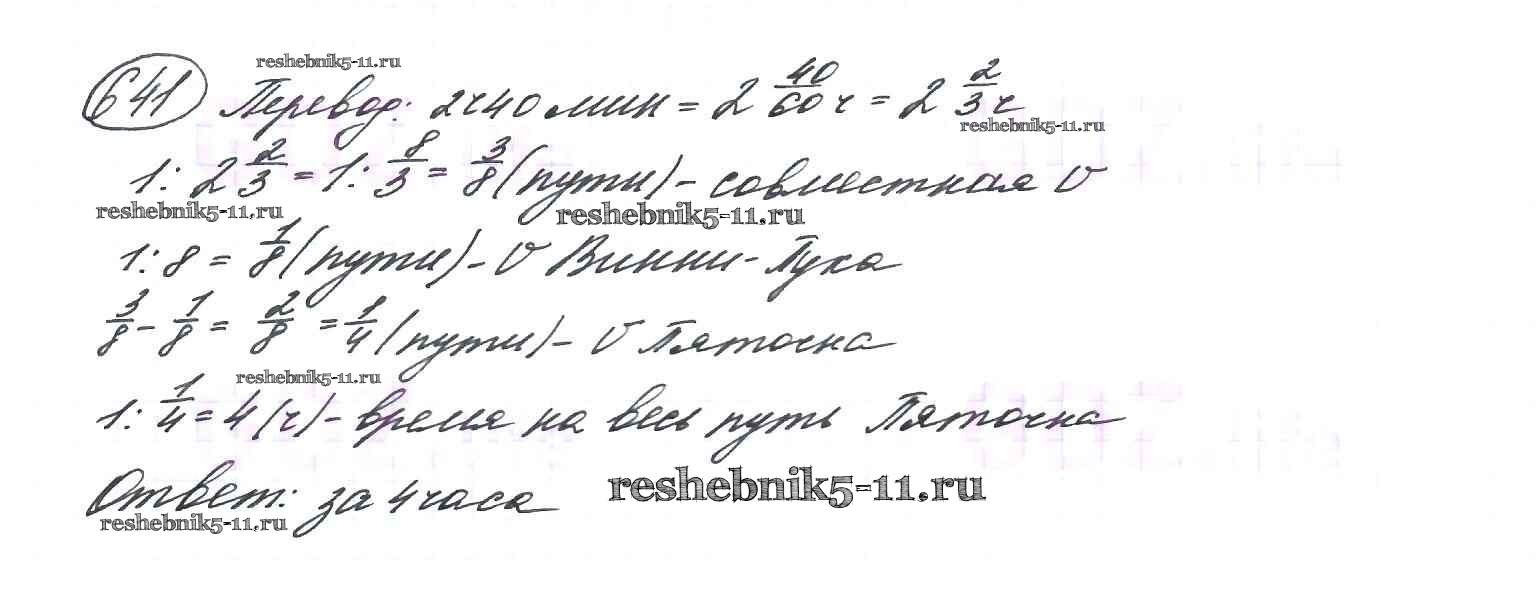 reshebnik5-11.ru
641 Перевод: 2ч40мин = 2 40/60 ч = 2 2/3 ч
reshebnik5-11.ru
1 : 2 2/3 = 1 : 8/3 = 3/8 (пути) - совместная V
reshebnik5-11.ru reshebnik5-11.ru
1 : 8 = 1/8 (пути) - V Винни-Пуха
3/8 - 1/8 = 2/8 = 1/4 (пути) - V Пяточка
reshebnik5-11.ru
1 : 1/4 = 4 (ч) - время на весь путь Пяточка
Ответ: за 4 часа reshebnik5-11.ru
reshebnik5-11.ru